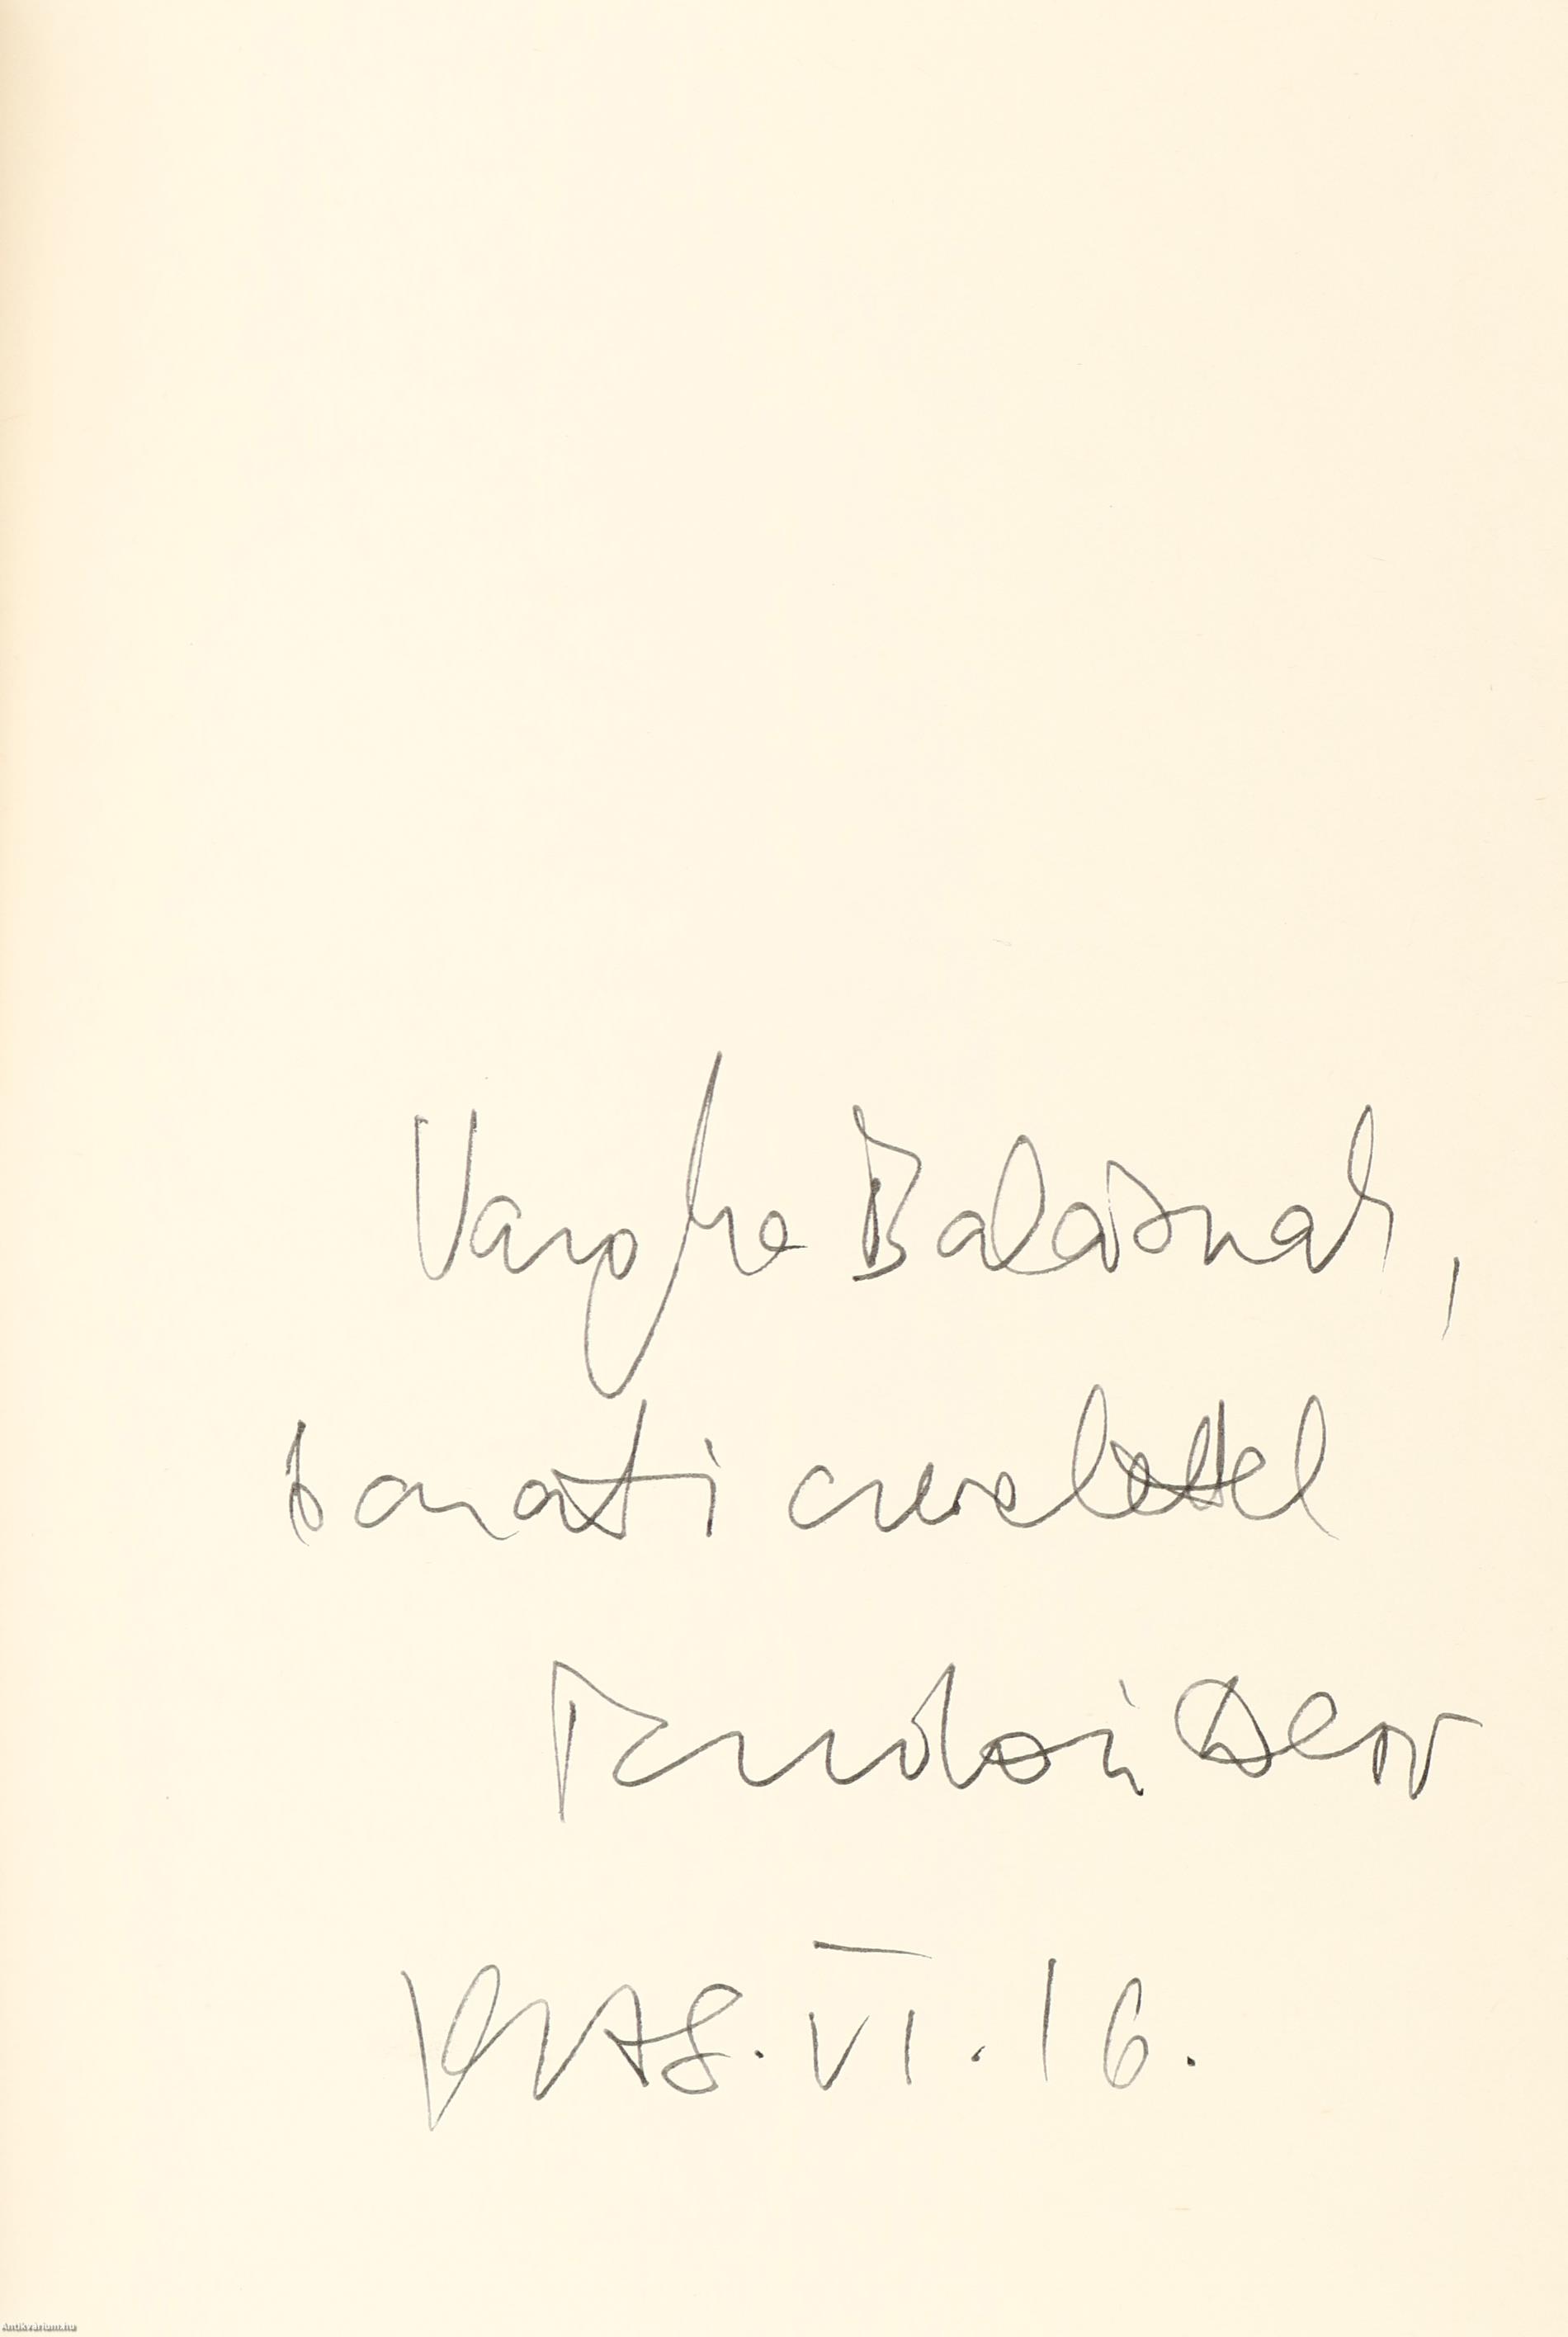 Vargha Balázsnak,
baráti üdvözlettel
Tandori Dezső
VI. 16.
Antikvárium.hu